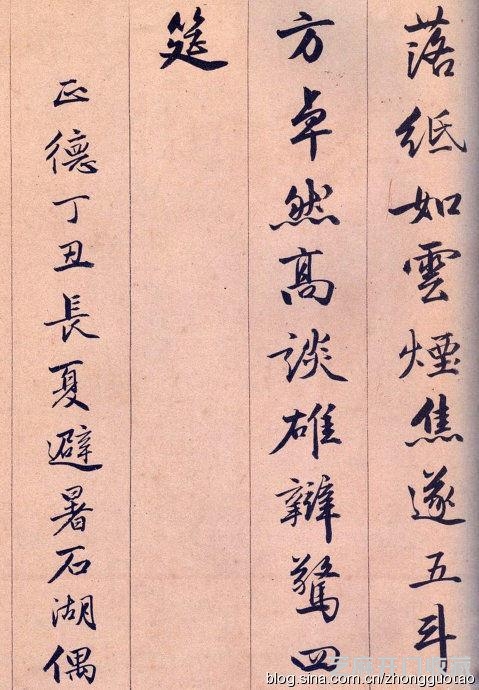 落紙如雲煙焦遂五斗
方卓然高談雄辯驚四
筵
正德丁丑長夏避暑石湖偶
blog.sina.com.cn/zhongguotao